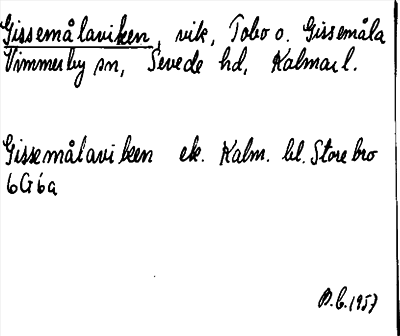 Gissemålaviken, vik, Tobo o. Gissemåla
Vimmerby sn, Sevede hd, Kalmar l.
Gissemålaviken ek. Kalm. bl. Storebro
6G6a
B.C. 1957